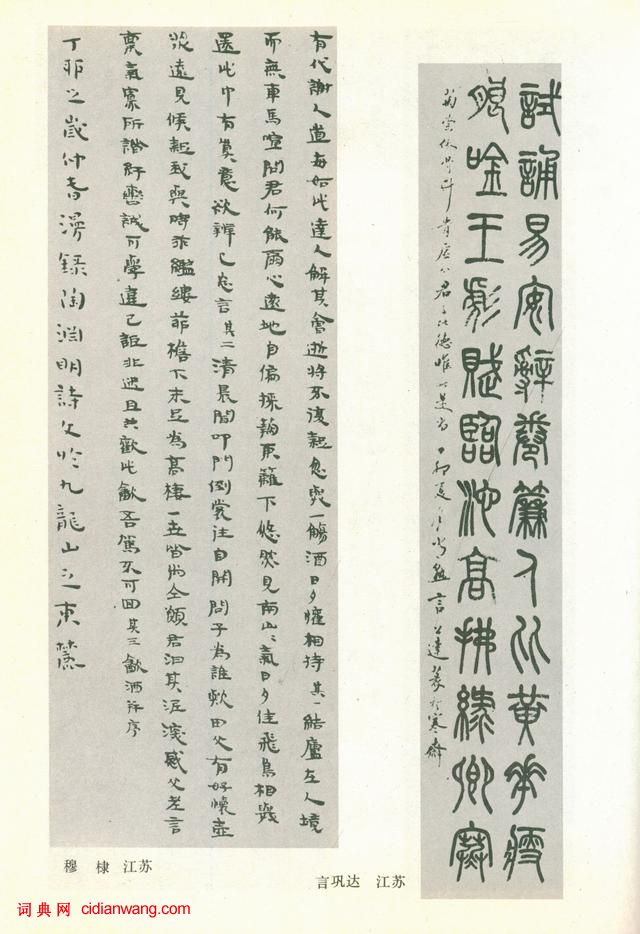 試誦易安辭卷簾人比黃花瘦
唫王勃賦臨池高拂綠卿寒
君子比德唯此是尚丁卯夏
言公達篆於寒齋
有代謝人道每如此達人解其會逝將不復疑忽與一觴酒日夕懽相持其一結廬在人境
而無車馬喧問君何能爾心遠地自偏採菊東籬下悠然見南山〻氣日夕佳飛鳥相與
還此中有真意欲辨已忘言其二清晨聞叩門倒裳往自開問子為誰歟田父有好懷壺
漿遠見候疑我與時乖繿縷茆檐下未足為高棲一世皆尚仝願君汩其泥深感父老言
稟氣寡所諧紆轡誠可學違己詎非迷且共歡此飲吾駕不可回其三飲酒并序
丁卯之歲仲春漫錄陶淵明詩文於九龍山之東麓
穆 棣 江苏
言巩达 江苏
词典网 cidianwang.com